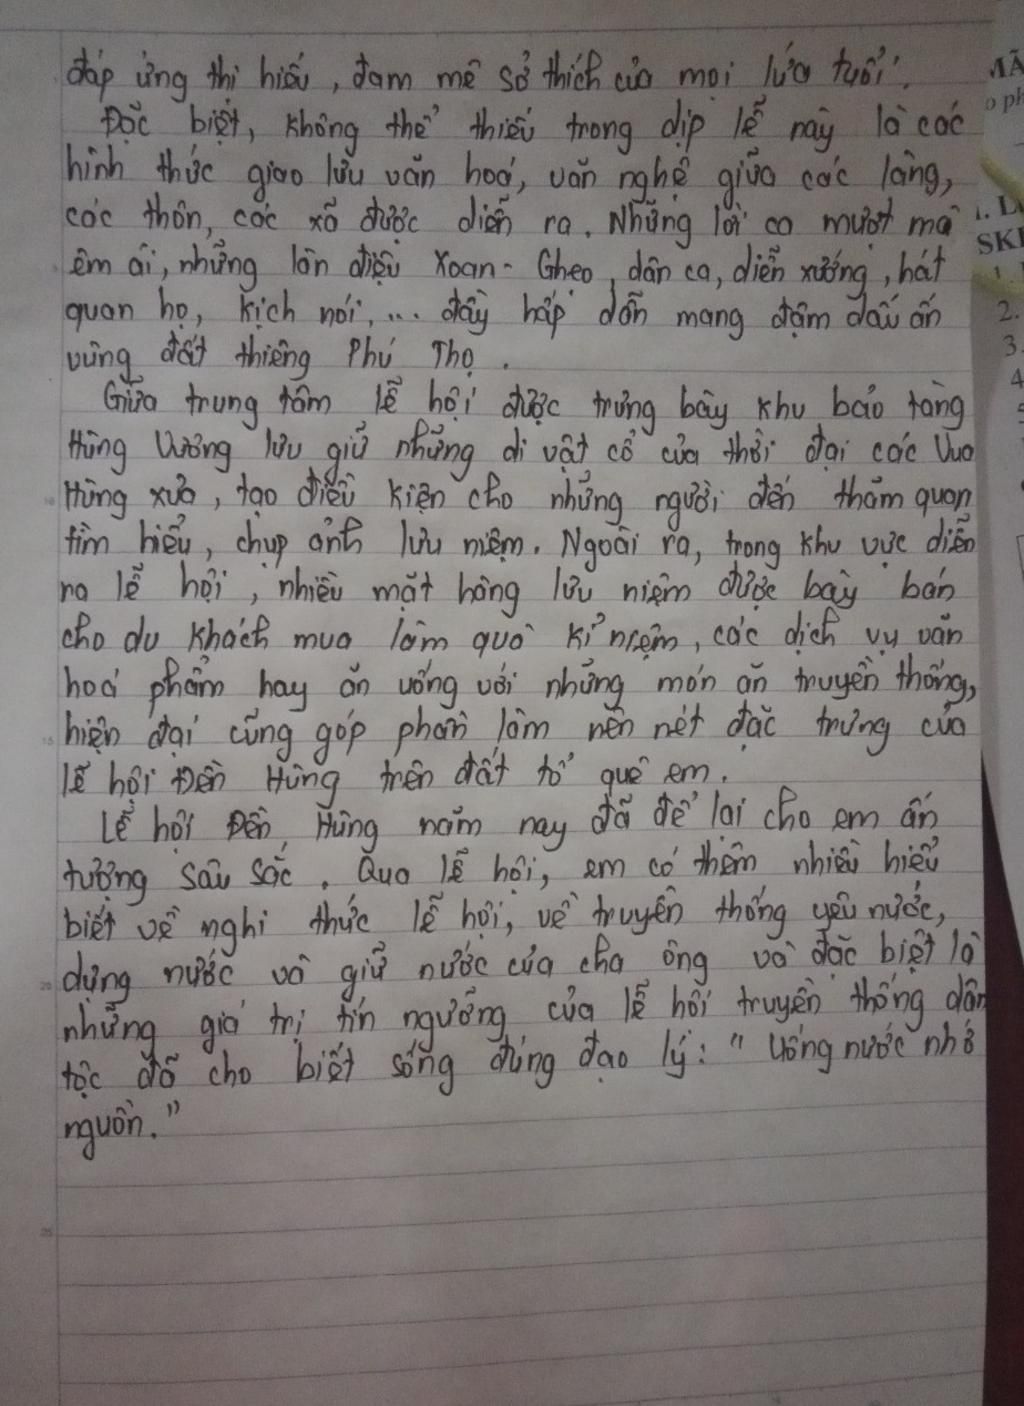 đáp ứng thị hiếu, đam mê sở thích của mọi lứa tuổi.
Đặc biệt, không thể thiếu trong dịp lễ này là các
hình thức giao lưu văn hoá, văn nghệ giữa các làng,
các thôn, các xã được diễn ra. Những lời ca mượt mà
êm ái, những làn điệu Xoan - Ghẹo, dân ca, diễn xướng, hát
quan họ, kịch nói,... đầy hấp dẫn mang đậm dấu ấn
vùng đất thiêng Phú Thọ.
Giữa trung tâm lễ hội được trưng bày khu bảo tàng
Hùng Vương lưu giữ những di vật cổ của thời đại các Vua
Hùng xưa, tạo điều kiện cho những người đến thăm quan
tìm hiểu, chụp ảnh lưu niệm. Ngoài ra, trong khu vực diễn
ra lễ hội, nhiều mặt hàng lưu niệm được bày bán
cho du khách mua làm quà kỉ niệm, các dịch vụ văn
hoá phẩm hay ăn uống với những món ăn truyền thống,
hiện đại cũng góp phần làm nên nét đặc trưng của
lễ hội Đền Hùng trên đất tổ quê em.
Lễ hội Đền Hùng năm nay đã để lại cho em ấn
tượng sâu sắc. Qua lễ hội, em có thêm nhiều hiểu
biết về nghi thức lễ hội, về truyền thống yêu nước,
dựng nước và giữ nước của cha ông và đặc biệt là
những giá trị tín ngưỡng của lễ hội truyền thống dân
tộc đã cho biết sống đúng đạo lý: "Uống nước nhớ
nguồn."
MÃ
o ph
1. L
SKI
1.
2.
3.
4